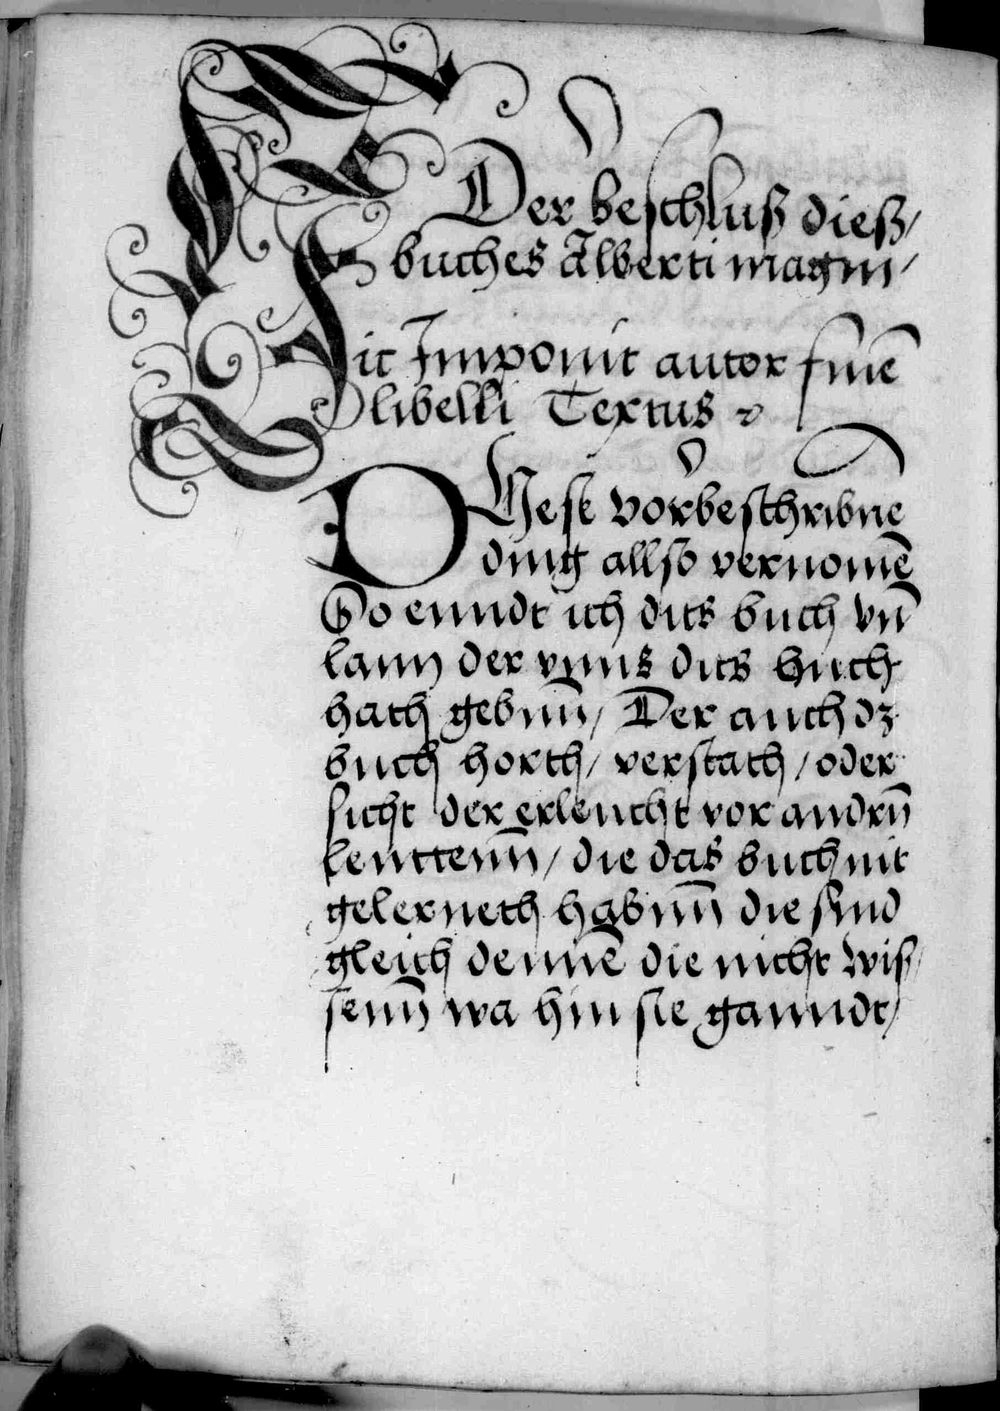 Der beschluß dieß/
buches Alberti magni/
Sic Imponit autor finē
libelli Textus
DIese vorbeschribne
ding allso vernomē
So enndt ich dits buch vn̄
lann der vnns dits buch
hath gebnn̄/ Der auch dz
buch horth/ verstath/ oder
sicht der erleucht vor andrn̄
leuttenn̄/ die das buch nit
gelerneth habnn̄ die sind
gleich dennē die nicht wis/
senn̄ wa hin sie ganndt/